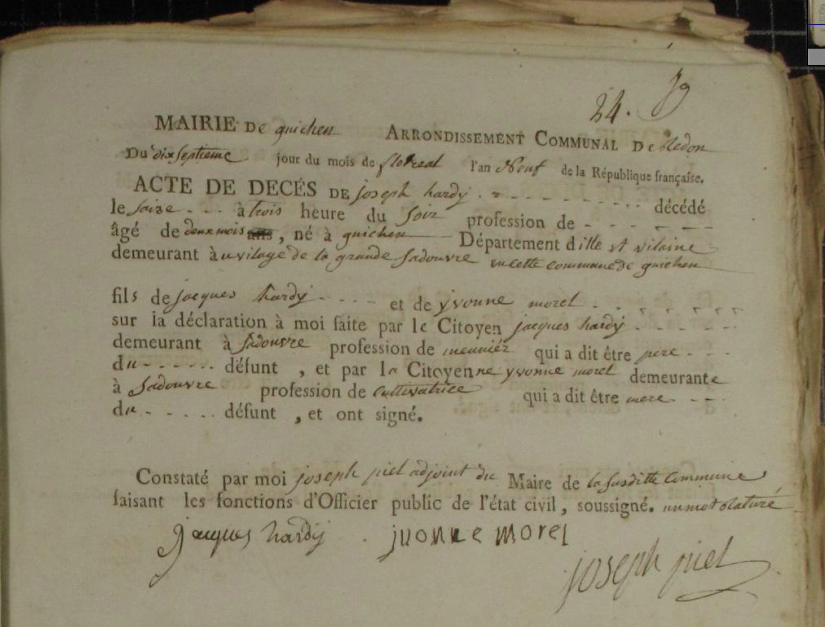 24.
MAIRIE DE guichen ARRONDISSEMENT COMMUNAL DE Redon
Du dix septieme jour du mois de floreal l'an Neuf de la République française.
ACTE DE DECÉS DE joseph hardy . - - - - - - - - - décédé
le seize - - - à trois heure du soir profession de - - - - - -
âgé de deux mois ans, né à guichen Département d ille et vilaine
demeurant à u vilage de la grande sadouvre en cette commune de guichen
fils de jacques hardy - - - - et de yvonne morel - - - - - - - -
sur la déclaration à moi faite par le Citoyen jacques hardy - - - - - -
demeurant à sadouvre profession de meunier qui a dit être pere - - -
du - - - - - - défunt , et par la Citoyenne yvonne morel demeurante
à sadouvre profession de cultivatrice qui a dit être mere - - -
du - - - - - défunt , et ont signé.
Constaté par moi joseph piel adjoint du Maire de la susditte Commune
faisant les fonctions d'Officier public de l'état civil, soussigné. un mot raturé
jacques hardy . juonne morel
joseph piel